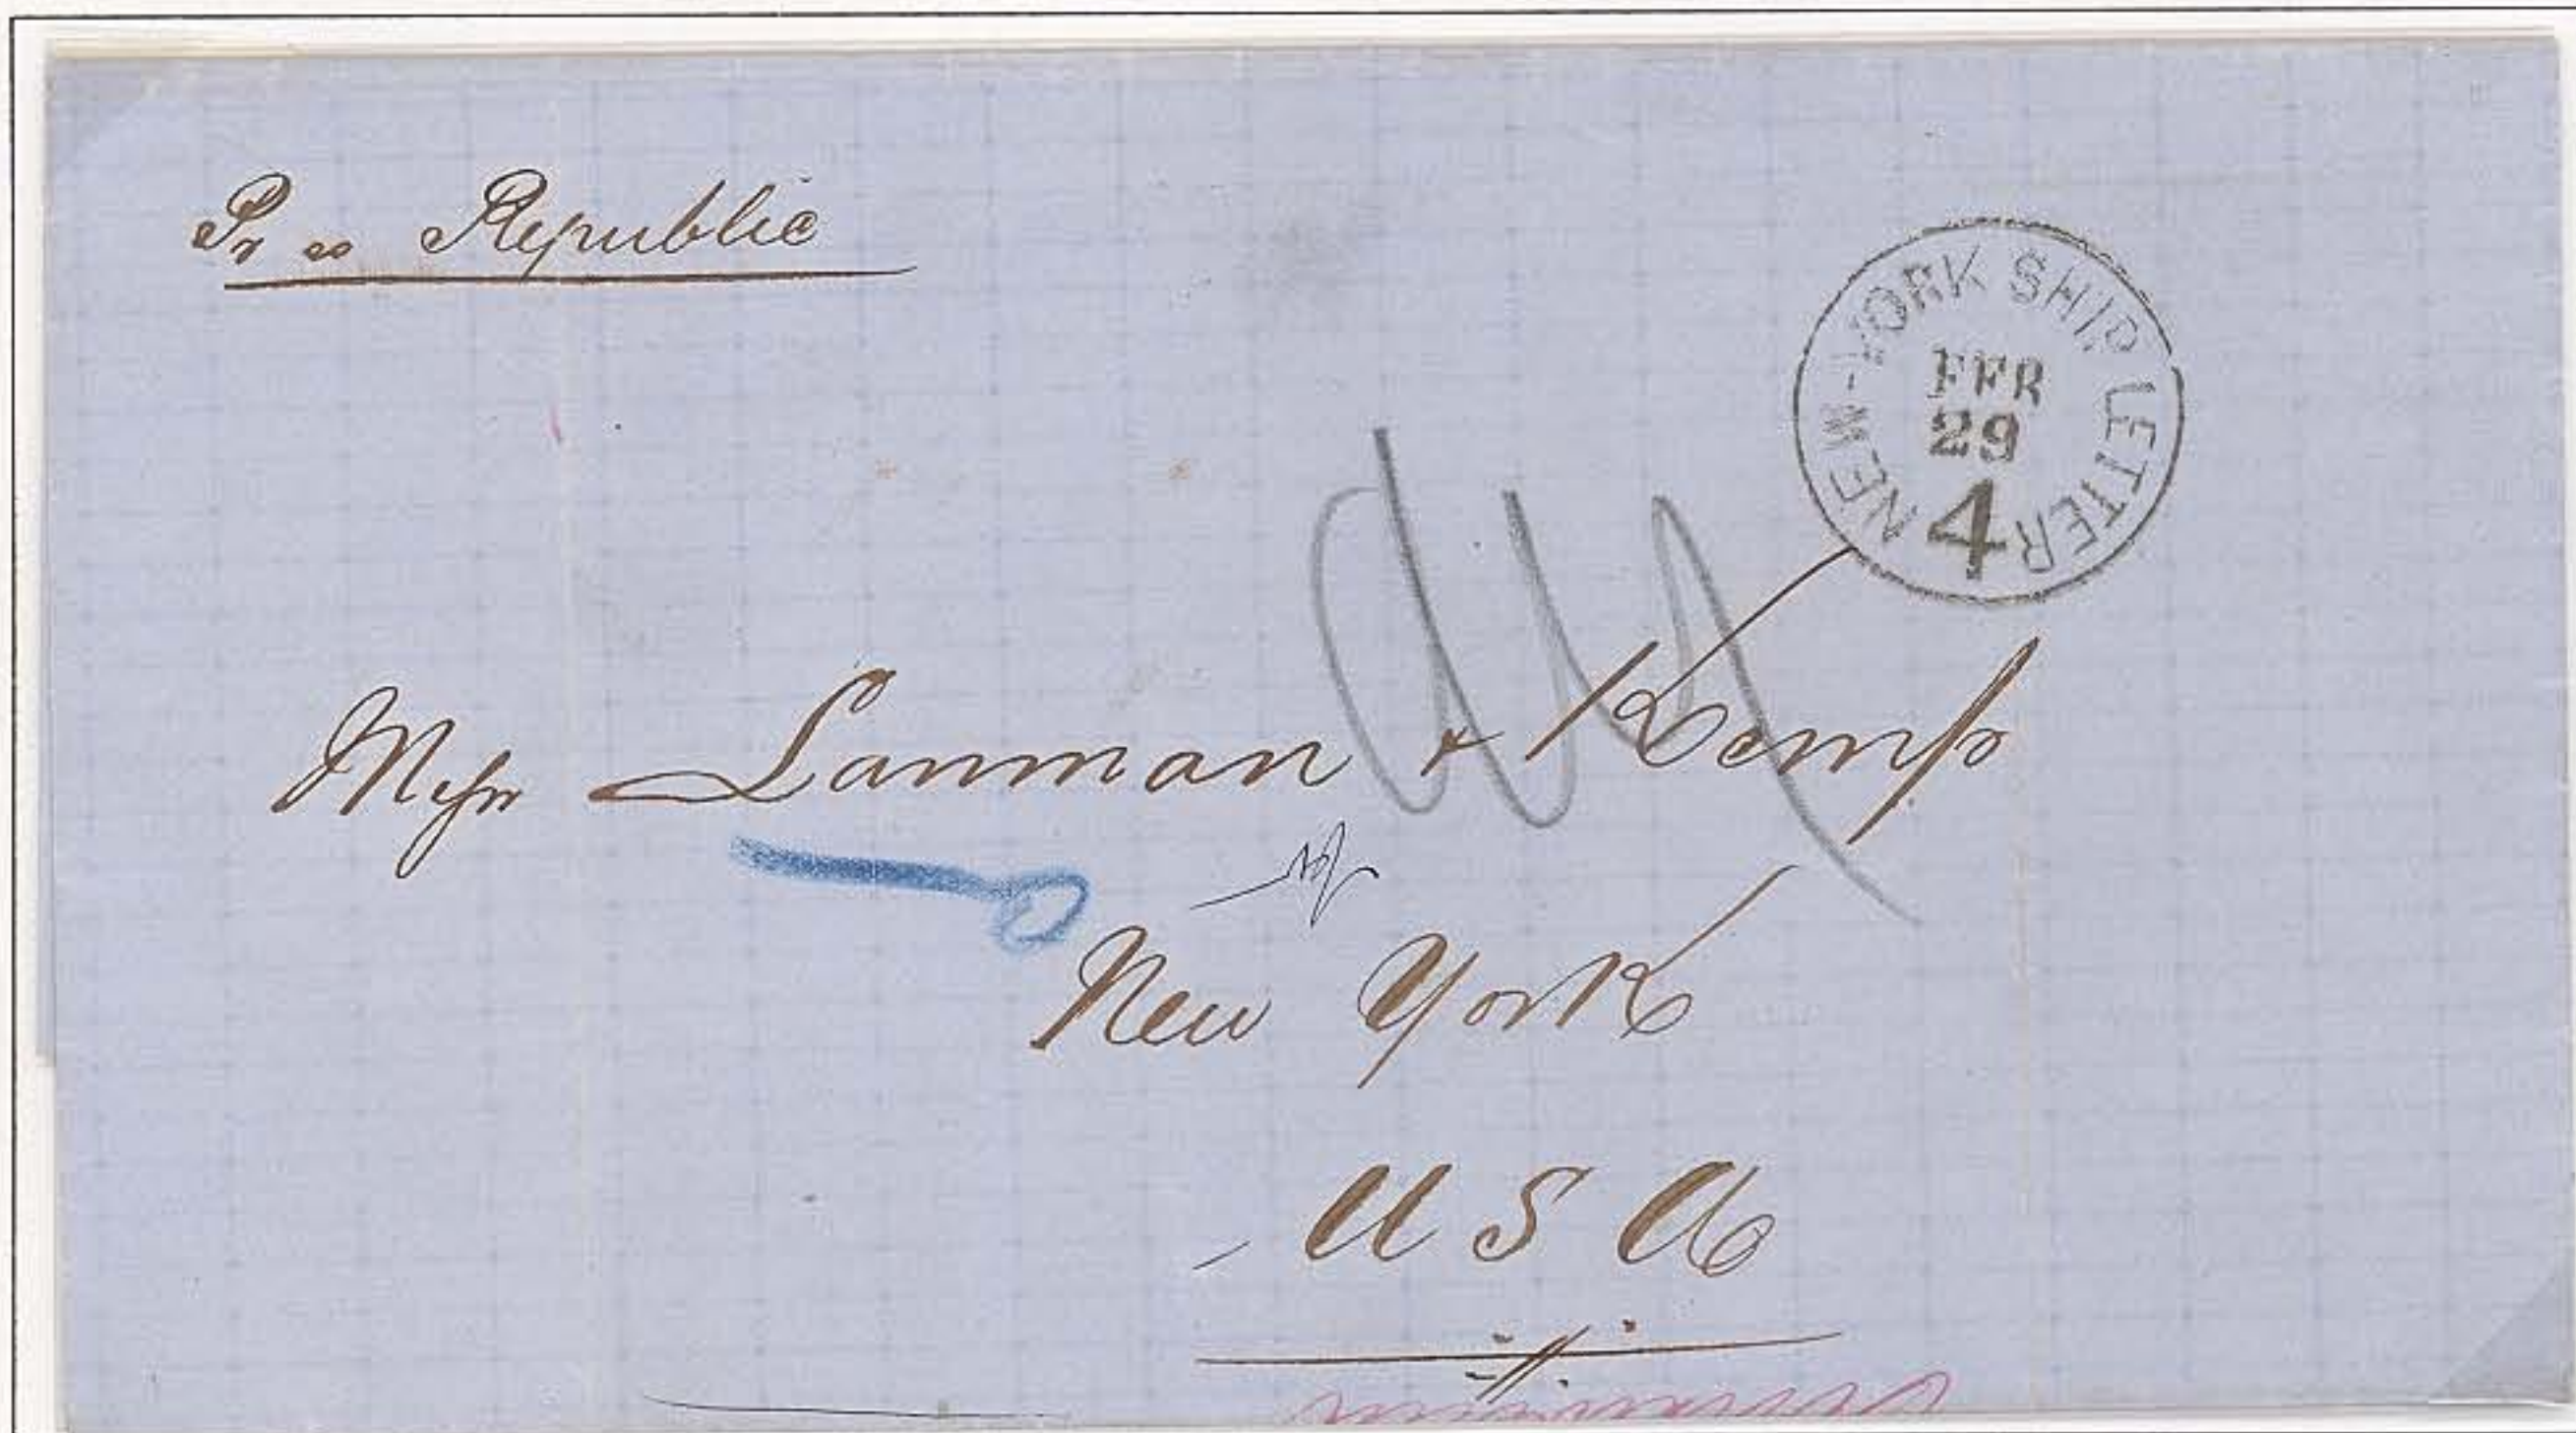 Pr ss Republic
NEW-YORK SHIP LETTER
FEB
29
4
Messrs Lanman & Kemp
New York
U S A